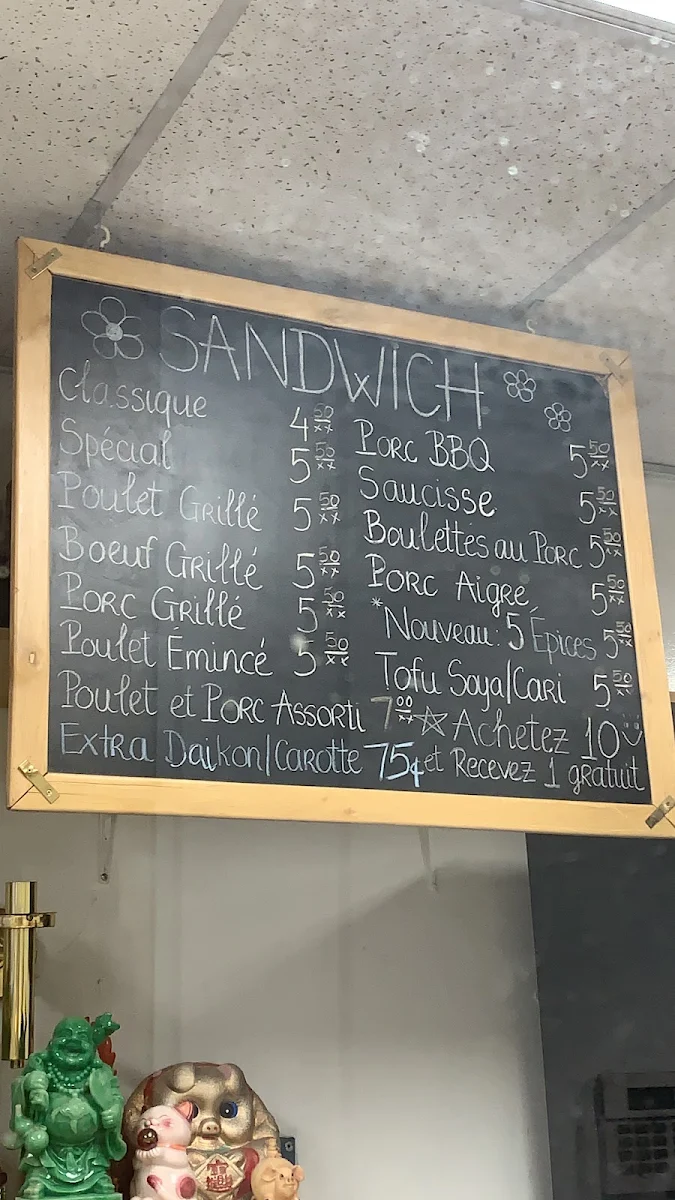 SANDWICH
Classique 4 50/xx
Spécial 5 50/xx
Poulet Grillé 5 50/xx
Boeuf Grillé 5 50/xx
Porc Grillé 5 50/xx
Poulet Émincé 5 50/xx
Poulet et Porc Assorti 7 00/xx
Extra Daikon/Carotte 75¢
Porc BBQ 5 50/xx
Saucisse 5 50/xx
Boulettes au Porc 5 50/xx
Porc Aigre 5 50/xx
*Nouveau: 5 Épices 5 50/xx
Tofu Soya/Cari 5 50/xx
☆ Achetez 10
et Recevez 1 gratuit